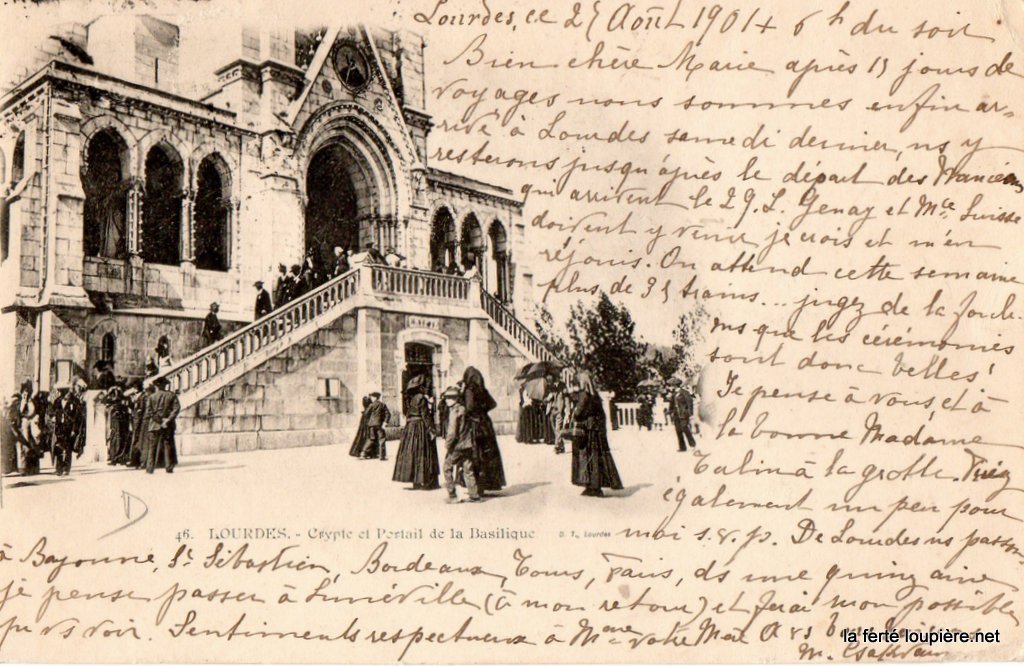 Lourdes, ce 25 Août 1904 6h du soir
Bien chère Marie après 15 jours de
voyages nous sommes enfin ar-
rivé à Lourdes samedi dernier, ns y
resterons jusqu'après le départ des Nancéens
qui arrivent le 29. L. Genay et Mlle Suisse
doivent y venir je crois et m'en
réjouis. On attend cette semaine
plus de 35 trains... jugez de la foule
ms que les cérémonies
sont donc belles!
Je pense à vous, et à
la bonne Madame
à la grotte. Priez
également un peu pour
moi s.v.p. De Lourdes ns passons
46. LOURDES. - Crypte et Portail de la Basilique
D. T., Lourdes
à Bayonne, St Sébastien, Bordeaux, Tours, Paris, ds une quinzaine
je pense passer à Lunéville (à mon retour) et ferai mon possible
pr vs voir. Sentiments respectueux à Mme votre Mère
M.
la ferté loupière.net